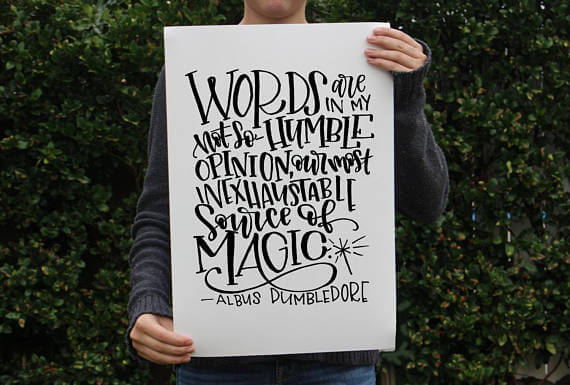 WORDS are
IN MY
not so- HUMBLE
OPINION, our most
INEXHAUSTABLE
Source of
MAGIC.
- ALBUS DUMBLEDORE